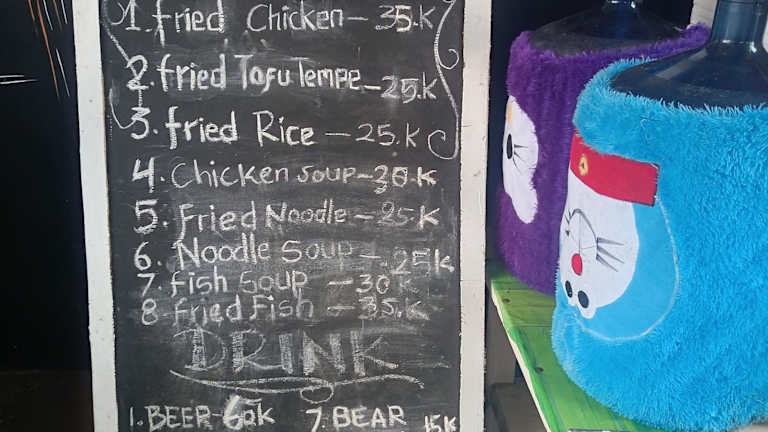 1. fried Chicken - 35.K
2. fried Tofu Tempe - 25.K
3. fried Rice - 25.K
4. Chicken soup - 30.K
5. Fried Noodle - 25.K
6. Noodle Soup - 25K
7. Fish Soup - 30K
8 fried Fish - 35.K
DRINK
1. BEER - 60K 7. BEAR 15K